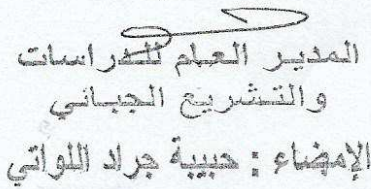 المدير العام للدراسات
والتشريع الجبائي
الإمضاء : حبيبة جراد اللواتي